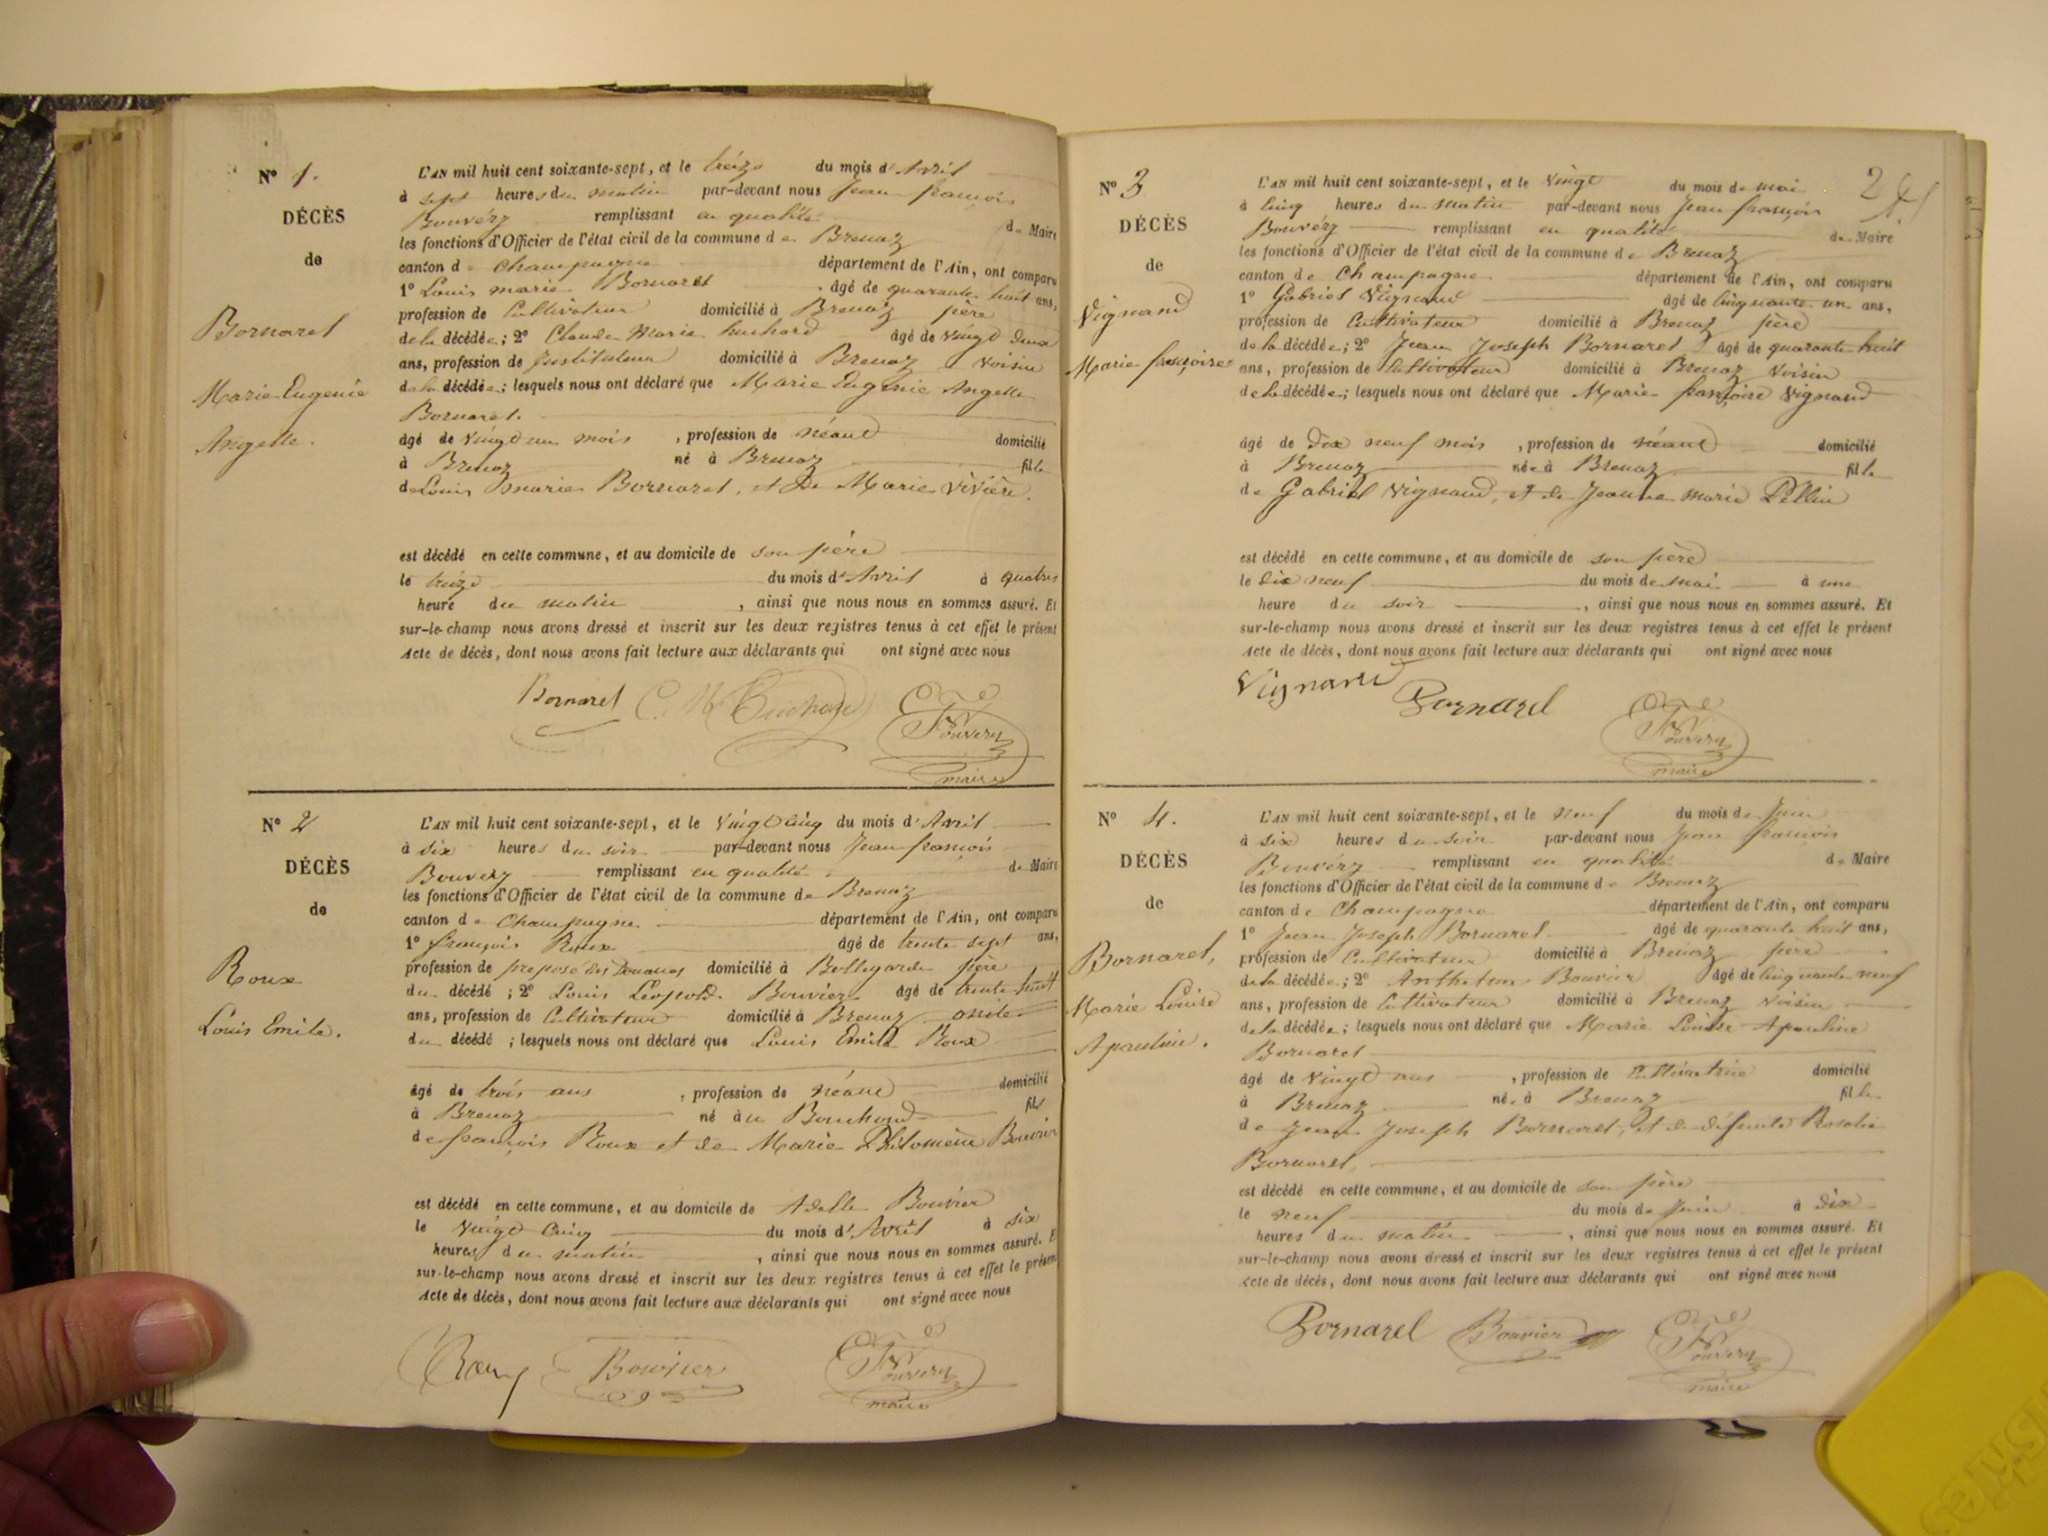 N° 1.
DÉCÈS
de
Bornarel
Marie Eugenie
Angelle.
L'AN mil huit cent soixante-sept, et le treize du mois d'Avril
à sept heures du matin par-devant nous Jean françois
Bouvéry remplissant en qualité de Maire
les fonctions d'Officier de l'état civil de la commune de Brenaz
canton de Champagne département de l'Ain, ont comparu
1° Louis marie Bornarel âgé de quarante huit ans,
profession de Cultivateur domicilié à Brenaz père
de la décédée; 2° Claude Marie Tuchard âgé de vingt deux
ans, profession de Instituteur domicilié à Brenaz voisin
de la décédée; lesquels nous ont déclaré que Marie Eugénie Angelle
Bornarel.
âgé de vingt un mois, profession de néant domicilié
à Brenaz né à Brenaz fille
de Louis marie Bornarel, et de Marie Vivière.
est décédé en cette commune, et au domicile de son père
le treize du mois d'Avril à quatres
heure du matin, ainsi que nous nous en sommes assuré. Et
sur-le-champ nous avons dressé et inscrit sur les deux registres tenus à cet effet le présent
acte de décès, dont nous avons fait lecture aux déclarants qui ont signé avec nous
Bornarel C. M. Tuchard Bouvery
maire
N° 2
DÉCÈS
de
Roux
Louis Emile.
L'AN mil huit cent soixante-sept, et le vingt cinq du mois d'Avril
à six heures du soir par-devant nous Jean françois
Bouvery remplissant en qualité de Maire
les fonctions d'Officier de l'état civil de la commune de Brenaz
canton de Champagne département de l'Ain, ont comparu
1° françois Roux âgé de trente sept ans,
profession de préposé des Douanes domicilié à Bellegarde père
du décédé; 2° Louis Léopold Bouvier âgé de trente huit
ans, profession de Cultivateur domicilié à Brenaz oncle
du décédé; lesquels nous ont déclaré que Louis Emile Roux
âgé de trois ans, profession de néant domicilié
à Brenaz né à u Bouchoud fils
de françois Roux et de Marie Philomène Bouvier
est décédé en cette commune, et au domicile de Adelle Bouvier
le vingt Cinq du mois d'Avril à six
heures du matin, ainsi que nous nous en sommes assuré. E
sur-le-champ nous avons dressé et inscrit sur les deux registres tenus à cet effet le présen
acte de décès, dont nous avons fait lecture aux déclarants qui ont signé avec nous
Roux Bouvier Bouvery
maire
24
N° 3
DÉCÈS
de
Vignand
Marie françoise
L'AN mil huit cent soixante-sept, et le vingt du mois de mai
à cinq heures du matin par-devant nous Jean françois
Bouvéry remplissant en qualité de Maire
les fonctions d'Officier de l'état civil de la commune de Brenaz
canton de Champagne département de l'Ain, ont comparu
1° Gabriel Vignand âgé de cinquante un ans,
profession de Cultivateur domicilié à Brenaz père
de la décédée; 2° Jean Joseph Bornarel âgé de quarante huit
ans, profession de Cultivateur domicilié à Brenaz voisin
de la décédée; lesquels nous ont déclaré que Marie françoise Vignand
âgé de dix neuf mois, profession de néant domicilié
à Brenaz née à Brenaz fille
de Gabriel Vignand, et de Jeanne marie Pellin
est décédé en cette commune, et au domicile de son père
le dix neuf du mois de mai à une
heure du soir, ainsi que nous nous en sommes assuré. Et
sur-le-champ nous avons dressé et inscrit sur les deux registres tenus à cet effet le présent
acte de décès, dont nous avons fait lecture aux déclarants qui ont signé avec nous
Vignand Bornarel Bouvery
maire
N° 4.
DÉCÈS
de
Bornarel,
Marie Louise
Apauline.
L'AN mil huit cent soixante-sept, et le neuf du mois de Juin
à six heures du soir par-devant nous Jean françois
Bouvéry remplissant en qualité de Maire
les fonctions d'Officier de l'état civil de la commune de Brenaz
canton de Champagne département de l'Ain, ont comparu
1° Jean Joseph Bornarel âgé de quarante huit ans,
profession de Cultivateur domicilié à Brenaz père
de la décédée; 2° Anthelme Bouvier âgé de cinquante neuf
ans, profession de Cultivateur domicilié à Brenaz voisin
de la décédée; lesquels nous ont déclaré que Marie Louise Apauline
Bornarel
âgé de vingt ans, profession de Cultivatrice domicilié
à Brenaz née à Brenaz fille
de Jean Joseph Bornarel, et de défunte Rosalie
Bornarel.
est décédé en cette commune, et au domicile de son père
le neuf du mois de Juin à dix
heures du matin, ainsi que nous nous en sommes assuré. Et
sur-le-champ nous avons dressé et inscrit sur les deux registres tenus à cet effet le présent
acte de décès, dont nous avons fait lecture aux déclarants qui ont signé avec nous
Bornarel Bouvier Bouvery
maire